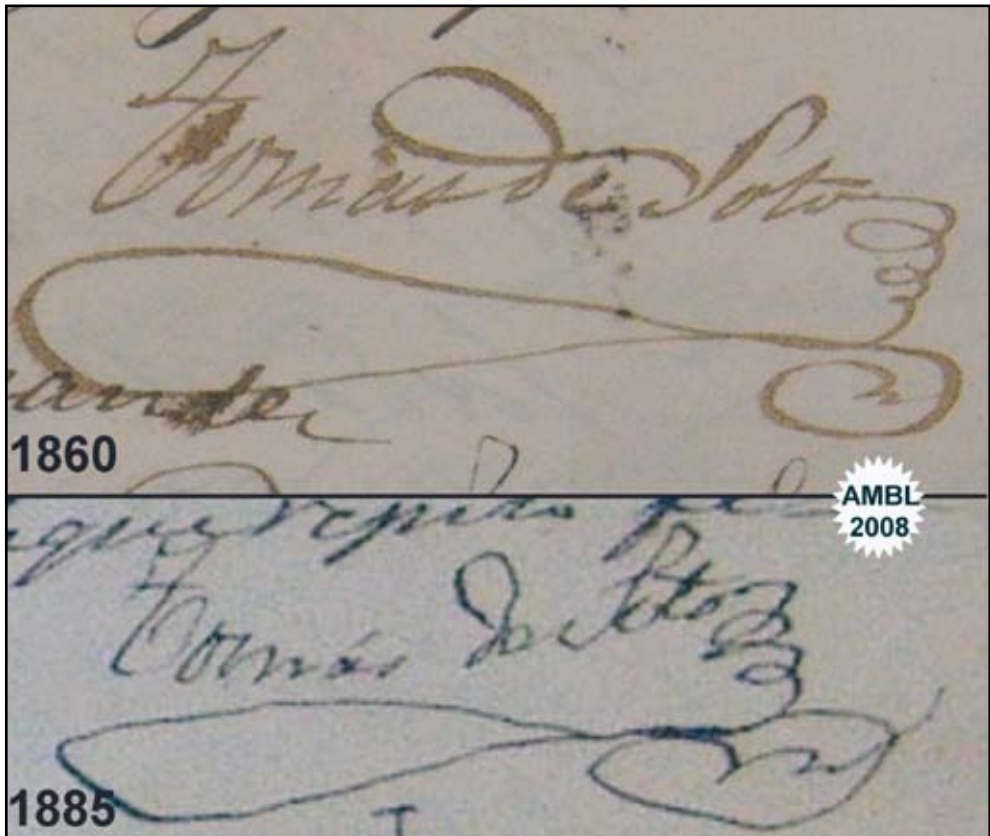 Tomás de Soto
1860
AMBL
2008
que repito
Tomás de Soto
1885